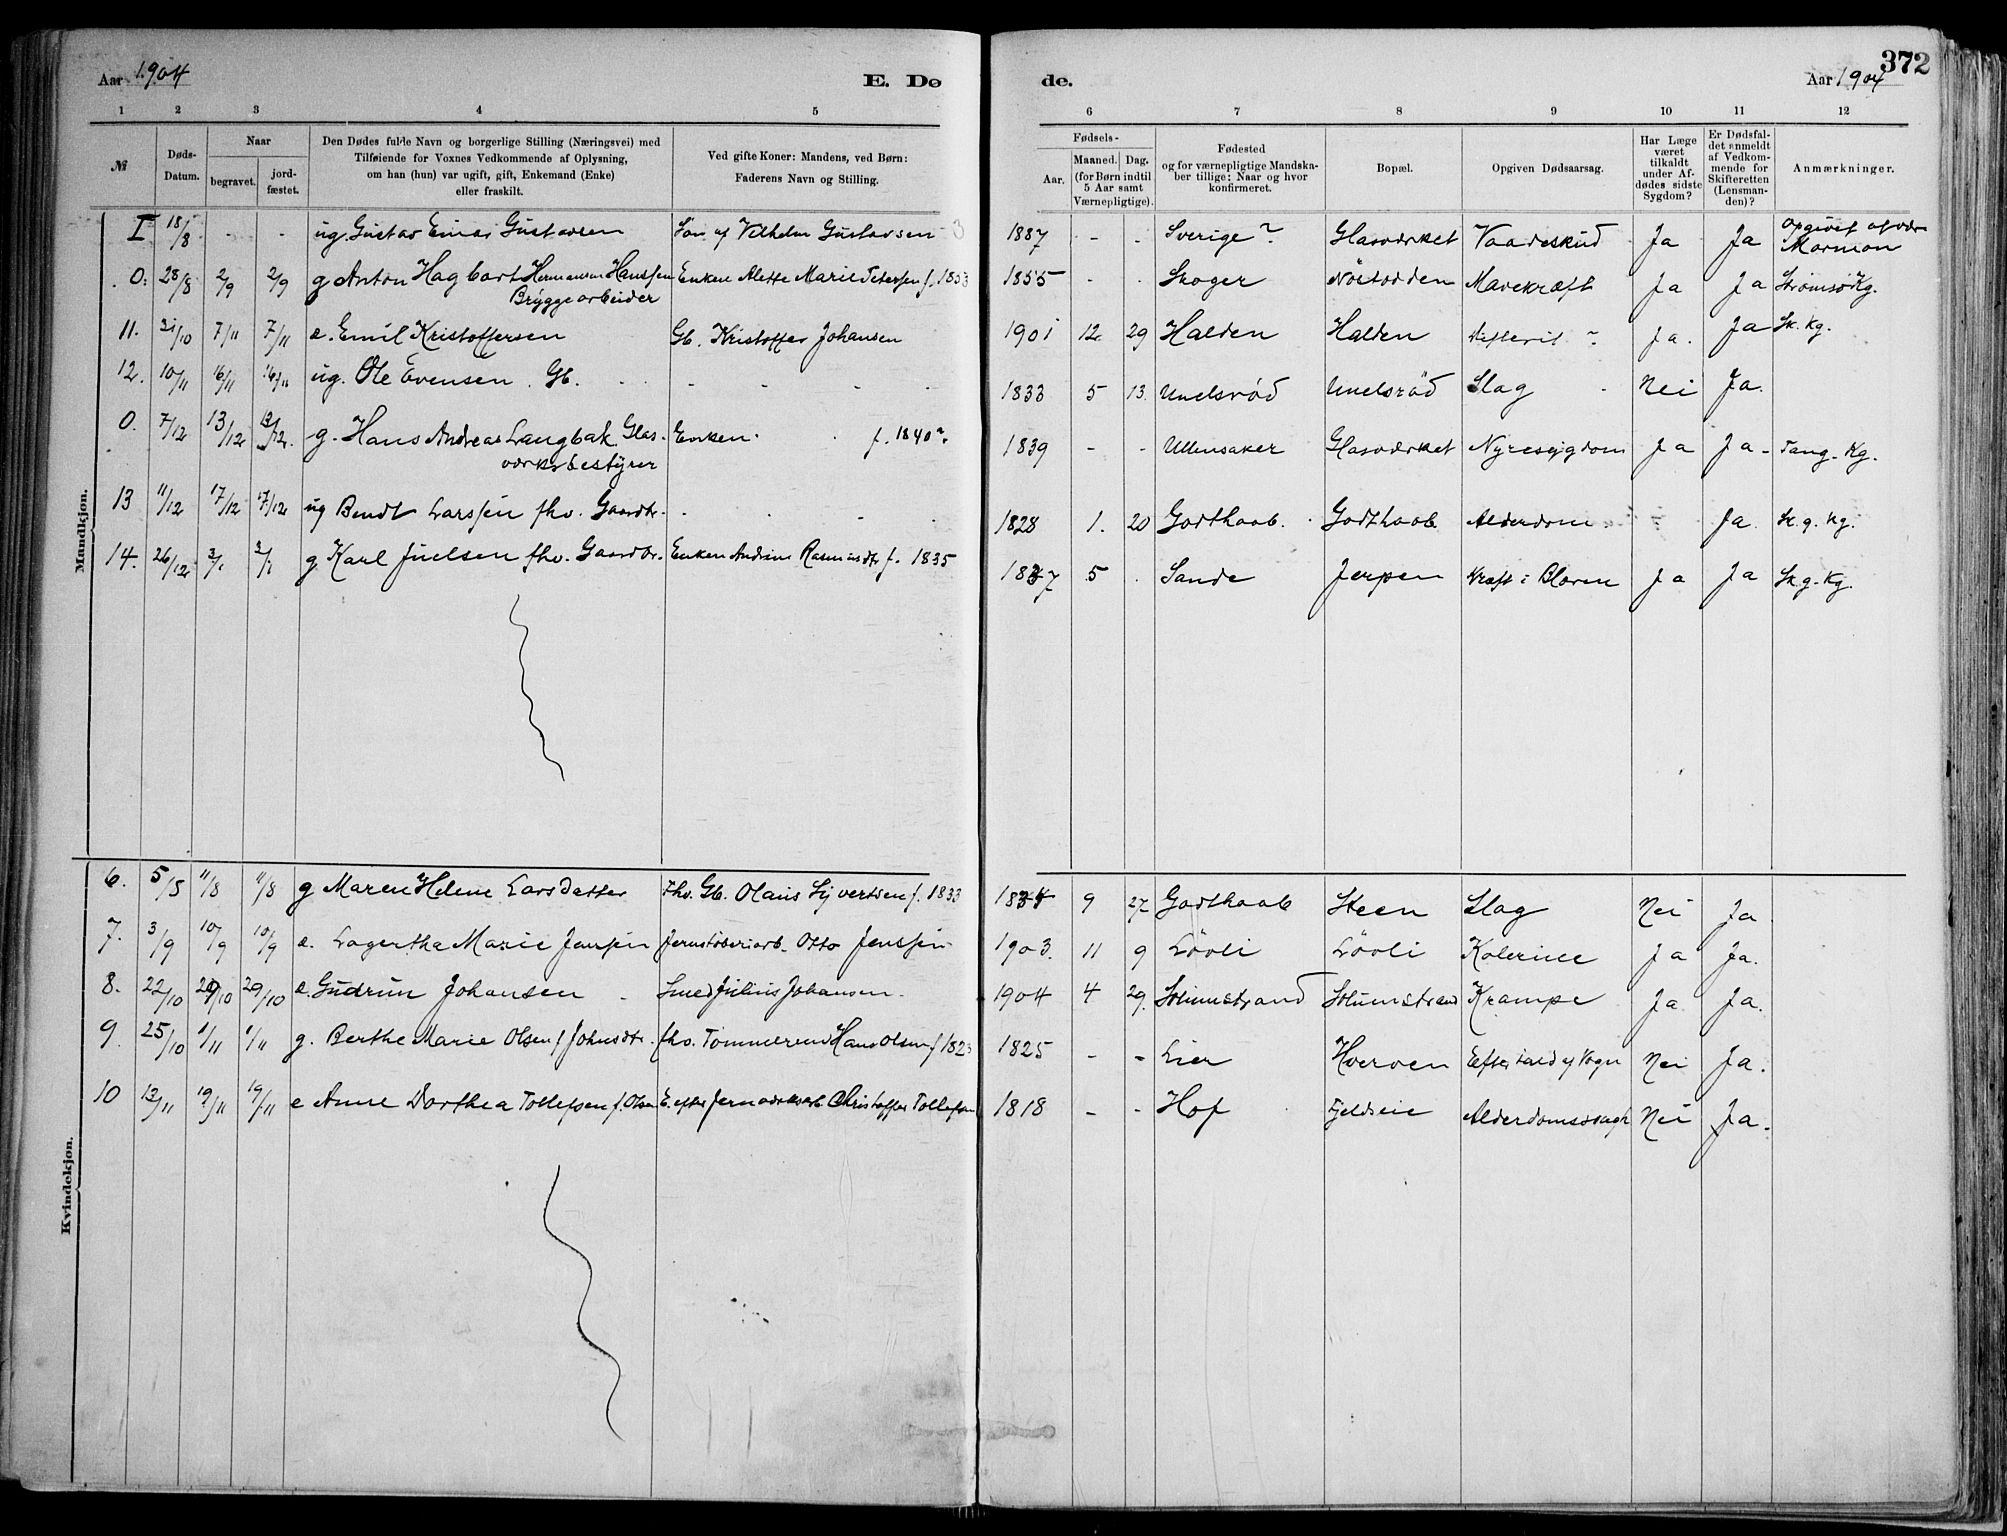 372
Aar 1904 E. Dø
de. Aar 1904
1 2 3 4 5
6 7 8 9 10 11 12
№
Døds-
Datum.
Naar
begravet.
jord-
fæstet.
Den Dødes fulde Navn og borgerlige Stilling (Næringsvei) med
Tilføiende for Voxnes Vedkommende af Oplysning,
om han (hun) var ugift, gift, Enkemand (Enke)
eller fraskilt.
Ved gifte Koner: Mandens, ved Børn:
Faderens Navn og Stilling.
Fødsels-
Aar.
Maaned. Dag.
(for Børn indtil
5 Aar samt
Værnepligtige).
Fødested
og for værnepligtige Mandska-
ber tillige: Naar og hvor
konfirmeret.
Bopæl.
Opgiven Dødsaarsag.
Har Læge
været
tilkaldt
under Af-
dødes sidste
Sygdom?
Er Dødsfal-
det anmeldt
af Vedkom-
mende for
Skifteretten
(Lensman-
den)?
Anmærkninger.
Mandkjøn.
I 18/8 - - ug. Gustav Einar Gustavsen Søn af Vilhelm Gustavsen 1887 - - Sverige? Glasværket Vaadeskud Ja Ja Opgivet at være
Mormon
0. 28/8 2/9 2/9 g Anton Hagbart Hermansen Hanssen Enken Alette Marie Petersen f. 1853 1855 - - Skoger Nøstodden Mavekræft Ja Ja Strømsø Kg.
Bryggearbeider
11. 31/10 7/11 7/11 e. Emil Kristoffersen Gb. Kristoffer Johansen 1901 12 29 Halden Halden Difterit? Ja. Ja Sk. Kg.
12. 10/11 16/11 16/11 ug. Ole Evensen Gb. - - - - 1833 5 13. Unelsrød Unelsrød Slag Nei Ja.
0. 7/12 13/12 13/12. g. Hans Andreas Langbak Glas- Enken f. 1840?. 1839 - - Ullensaker Glasværket Nyresygdom Ja Ja - Tang. Kg.
værksbestyrer
13 11/12 17/12 17/12 ug Bendt Larssen fhv. Gaardbr. - - - - 1828 1. 20 Godthaab. Godthaab Alderdom Ja. Sk. g. Kg.
14. 26/12 3/1 3/1 g Karl Juelsen fhv. Gaardbr. Enken Andrine Rasmusdtr f. 1835 1837 5 Sande Jerpen Kræft i Blæren Ja Ja Sk. g. Kg.
Kvindekjøn.
6. 5/5 11/8 11/8 g Maren Helene Larsdatter fhv. Gb. Olaus Syvertsen f. 1833 1834 9 27 Godthaab Steen Slag Nei Ja
7. 3/9 10/9 10/9 e. Lagertha Marie Jenssen Jernstøberiarb. Otto Jenssen 1903. 11 9 Løvli Løvli Kolerine Ja Ja.
8. 22/10 29/10 29/10 e. Gudrun Johansen Smed Julius Johansen. 1904 4 29. Solumstrand Solumstrand Krampe Ja Ja.
9. 25/10 1/11 1/11 g. Berthe Marie Olsen f Johnsdtr. fhv. Tømmerm Hans Olsen f 1823 1825 - - Lier Hverven Efter Fald af Vogn Nei Ja.
10 13/11 19/11 19/11 e Anne Dorthea Tollefsen f. Olsen E. efter Jernværksarb Christoffer Tollefsen 1818 - - Hof Fjeldseie Alderdomssvagh Nei Ja.